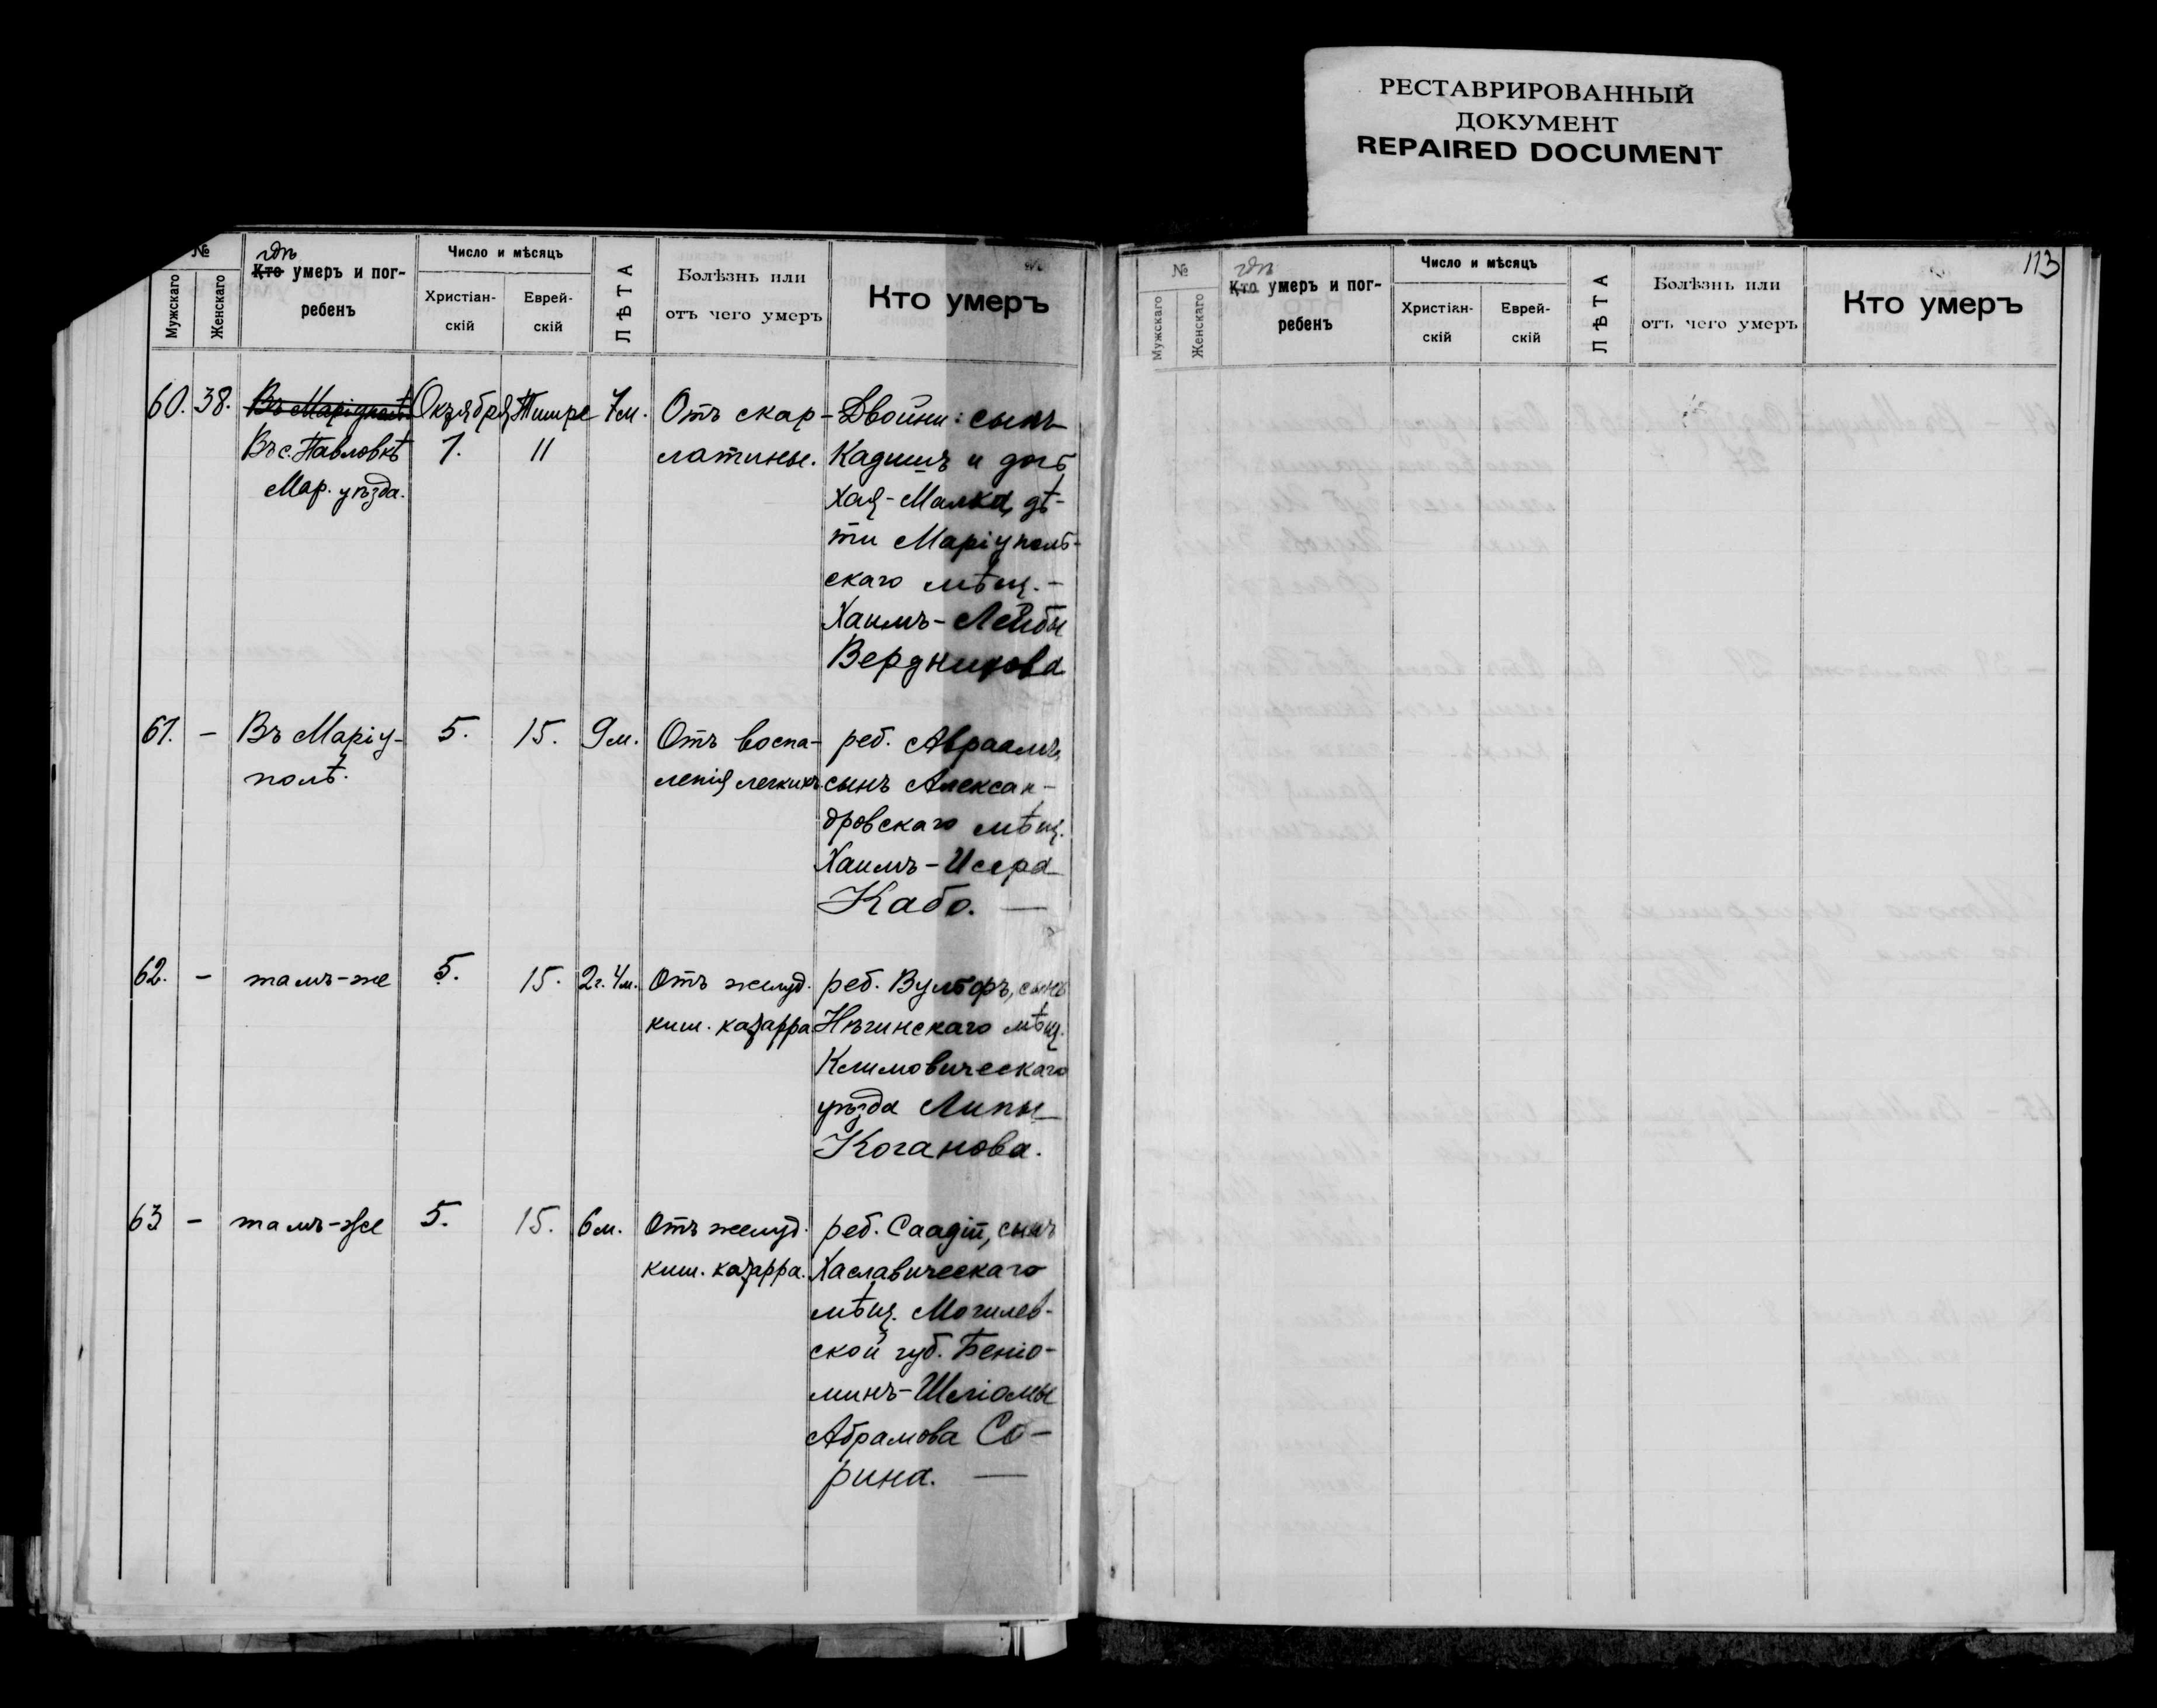 РЕСТАВРИРОВАННЫЙ
ДОКУМЕНТ
REPAIRED DOCUMENT
№
Мужскаго
Женскаго
гдѣ
Кто умеръ и пог-
ребенъ
Число и мѣсяцъ
Христіан-
скій
Еврей-
скій
ЛѢТА
Болѣзнь или
отъ чего умеръ
Кто умеръ
60. 38.
Въ Маріуполѣ
Въ с. Павловкѣ
Мар. уѣзда.
Октября
1.
Тишре
11
7 м.
Отъ скар-
латины.
Двойни: сынъ
Кадишъ и дочь
Хая-Малка, дѣ-
ти Маріуполь-
скаго мѣщ. -
Хаимъ-Лейбы
Вердникова
61. -
Въ Маріу-
полѣ.
5.
15.
9 м.
Отъ воспа-
ленія легкихъ.
реб. Авраамъ,
сынъ Алексан-
дровскаго мѣщ.
Хаимъ-Исера
Кабо. —
62. -
тамъ-же
5.
15.
2 г. 4 м.
Отъ желуд.
киш. катарра
реб. Вульфъ, сынъ
Нѣгинскаго мѣщ.
Климовическаго
уѣзда Липы
Коганова.
63 -
тамъ-же
5.
15.
6 м.
Отъ желуд.
киш. катарра.
реб. Саадій, сынъ
Хаславическаго
мѣщ. Могилев-
ской губ. Беніо-
минъ-Шліомы
Абрамова Со-
рина. —
113
№
Мужскаго
Женскаго
гдѣ
Кто умеръ и пог-
ребенъ
Число и мѣсяцъ
Христіан-
скій
Еврей-
скій
ЛѢТА
Болѣзнь или
отъ чего умеръ
Кто умеръ